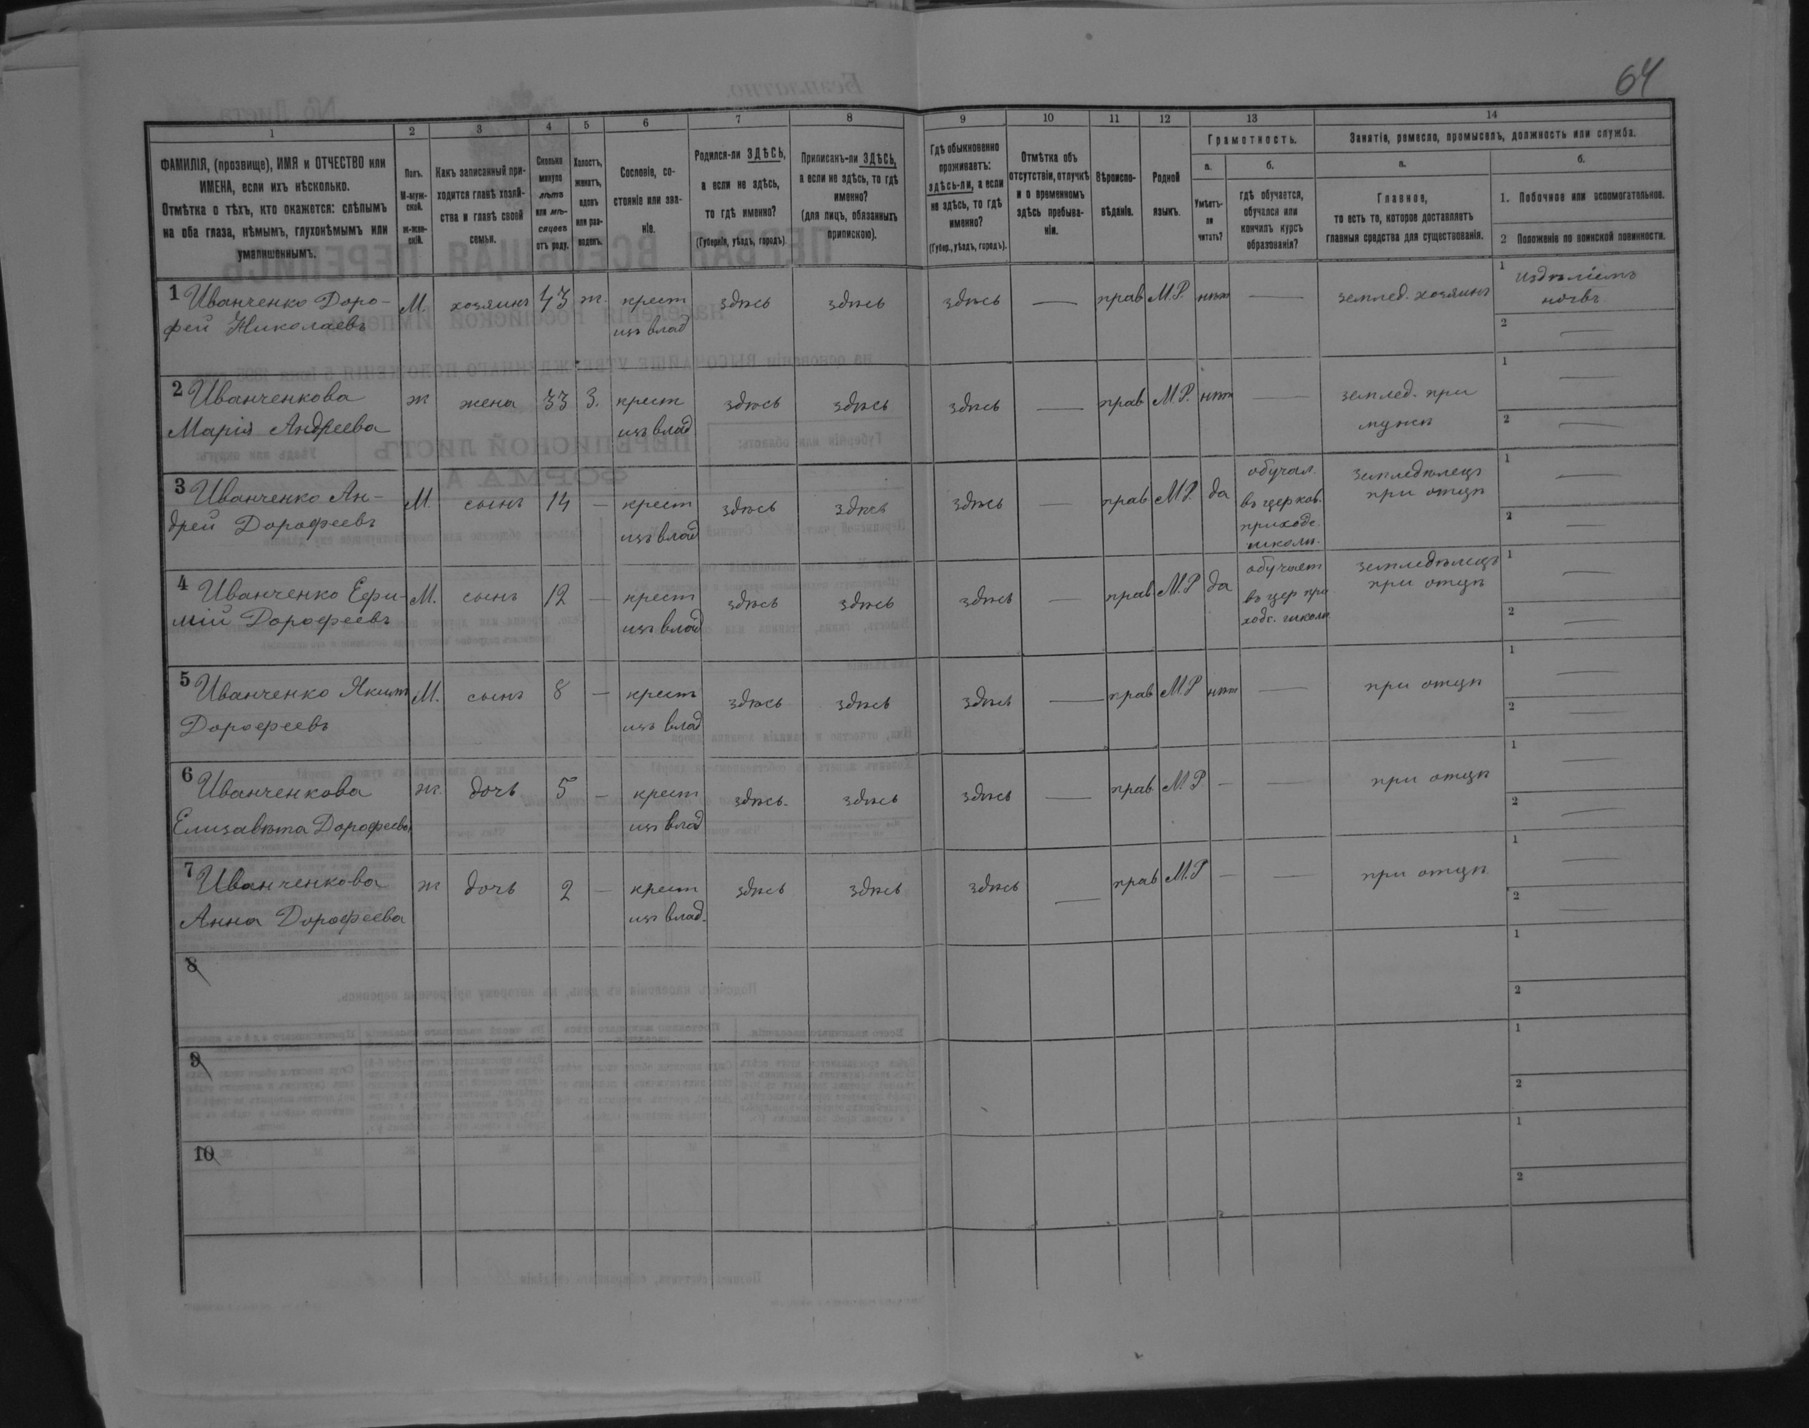 64
1
2
3
4
5
6
7
8
9
10
11
12
13
14
ФАМИЛІЯ, (прозвище), ИМЯ и ОТЧЕСТВО или
ИМЕНА, если ихъ нѣсколько.
Отмѣтка о тѣхъ, кто окажется: слѣпымъ
на оба глаза, нѣмымъ, глухонѣмымъ или
умалишеннымъ.
Полъ.
М-муж-
ской.
ж-жен-
скій.
Какъ записанный при-
ходится главѣ хозяй-
ства и главѣ своей
семьи.
Сколько
минуло
лѣтъ
или мѣ-
сяцевъ
отъ роду.
Холостъ,
женатъ,
вдовъ
или раз-
веденъ.
Сословіе, со-
стояніе или зва-
ніе.
Родился-ли ЗДѢСЬ,
а если не здѣсь,
то гдѣ именно?
(Губернія, уѣздъ, городъ).
Приписанъ-ли ЗДѢСЬ,
а если не здѣсь, то гдѣ
именно?
(для лицъ, обязанныхъ
припискою).
Гдѣ обыкновенно
проживаетъ:
здѣсь-ли, а если
не здѣсь, то гдѣ
именно?
(Губер., уѣздъ, городъ).
Отмѣтка объ
отсутствіи, отлучкѣ
и о временномъ
здѣсь пребыва-
ніи.
Вѣроиспо-
вѣданіе.
Родной
языкъ.
Грамотность.
а.
Умѣетъ-
ли
читать?
б.
гдѣ обучается,
обучался или
кончилъ курсъ
образованія?
Занятія, ремесло, промыселъ, должность или служба.
а.
Главное,
то есть то, которое доставляетъ
главныя средства для существованія.
б.
1. Побочное или вспомогательное.
2 Положеніе по воинской повинности.
1 Иванченко Доро-
фей Николаевъ
М. хозяинъ 43 ж. крест
изъ влад
здѣсь здѣсь здѣсь — прав М.Р. нѣт — землед. хозяинъ
1
2 —
2 Иванченкова
Марія Андреева
ж жена 33 з. крест
изъ влад
здѣсь здѣсь здѣсь — прав М.Р. нѣт — землед. при
мужѣ
1 —
2 —
3 Иванченко Ан-
дрей Дорофеевъ
М. сынъ 14 — крест
изъ влад
здѣсь здѣсь здѣсь — прав М.Р. да
обучал.
въ церков.
приходс.
школѣ.
земледѣлецъ
при отцѣ
1 —
2 —
4 Иванченко Ефи-
мій Дорофеевъ
М. сынъ 12 — крест
изъ влад
здѣсь здѣсь здѣсь — прав М.Р да
обучает
въ цер при
ходс. школѣ
земледѣлецъ
при отцѣ
1 —
2 —
5 Иванченко Якимъ
Дорофеевъ
М. сынъ 8 — крестъ
изъ влад
здѣсь здѣсь здѣсь — прав М.Р нѣт — при отцѣ
1 —
2 —
6 Иванченкова
Елизавѣта Дорофеева
ж. дочь 5 — крест
изъ влад
здѣсь. здѣсь здѣсь — прав М.Р — — при отцѣ
1 —
2 —
7 Иванченкова
Анна Дорофеева
ж дочь 2 — крест
изъ влад.
здѣсь здѣсь здѣсь — прав М.Р — — при отцѣ
1 —
2 —
8
1
2
9
1
2
10
1
2